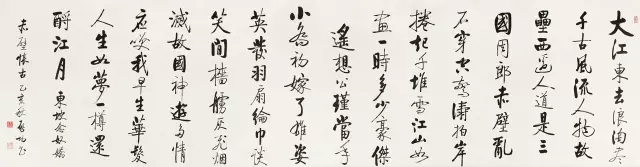 大江東去浪淘盡
千古風流人物故
壘西邊人道是三
國周郎赤壁亂
石穿空驚濤拍岸
捲起千堆雪江山如
畫一時多少豪傑
遙想公瑾當年
小喬初嫁了雄姿
英發羽扇綸巾談
笑間檣艣灰飛烟
滅故國神遊多情
應笑我早生華髮
人生如夢一樽還
酹江月 東坡念奴嬌
赤壁懷古 乙亥秋